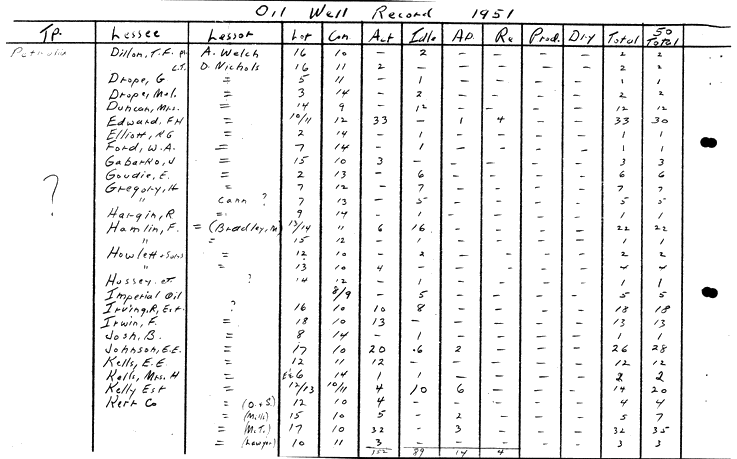 Oil Well Record 1951
TP. Lessee Lessor Lot Con Act Idle AD. Re Prod. Dry Total 50 Total
Petrolia Dillon, T.F. A. Welch 16 10 - 2 - - 2 2
L.T. D. Nichols 16 11 2 - - - 2 2
Drope, G = 5 11 - 1 - - 1 1
Drope, Mel. = 3 14 - 2 - - 2 2
Duncan, Mrs. = 14 9 - 12 - - 12 12
Edward, FH = 10/11 12 33 - 1 4 33 30
Elliott, = 2 14 - 1 - - 1 1
Ford, W.A. = 7 14 - 1 - - 1 1
Gabarko, J = 15 10 3 - - - 3 3
Goudie, E. = 2 13 - 6 - - 6 6
? Gregory, H = 7 12 - 7 - - 7 7
" Cann ? 7 13 - 5 - - 5 5
Hargin, R = 9 14 - 1 - - 1 1
Hamlin, F. = (Bradley, M) 13/14 11 6 16 - - 22 22
" = 15 12 - 1 - - 1 1
Howlett + Sons = 12 10 - 2 - - 2 2
" = 13 10 4 - - - 4 4
Hussey ? 14 12 - 1 - - 1 1
Imperial Oil 8/9 - 5 - - 5 5
Irving, R, Est. ? 16 10 10 8 - - 18 18
Irwin, F. = 18 10 13 - - - 13 13
Josh, B. = 8 14 - 1 - - 1 1
Johnson, E.E. = 17 10 20 .6 2 - 26 28
Kells, E.E = 12 11 12 - - - 12 12
Kells, Mrs. H = 6 14 1 1 - - 2 2
Kelly Est = 12/13 10/11 4 10 6 - 14 20
Kerr Co = (O.+S.) 12 10 4 - - - 4 4
= (Mills) 15 10 5 - 2 - 5 7
= (M.T.) 17 10 32 - 3 - 32 35
= (Lawyer) 10 11 3 - - - 3 3
152 89 14 4